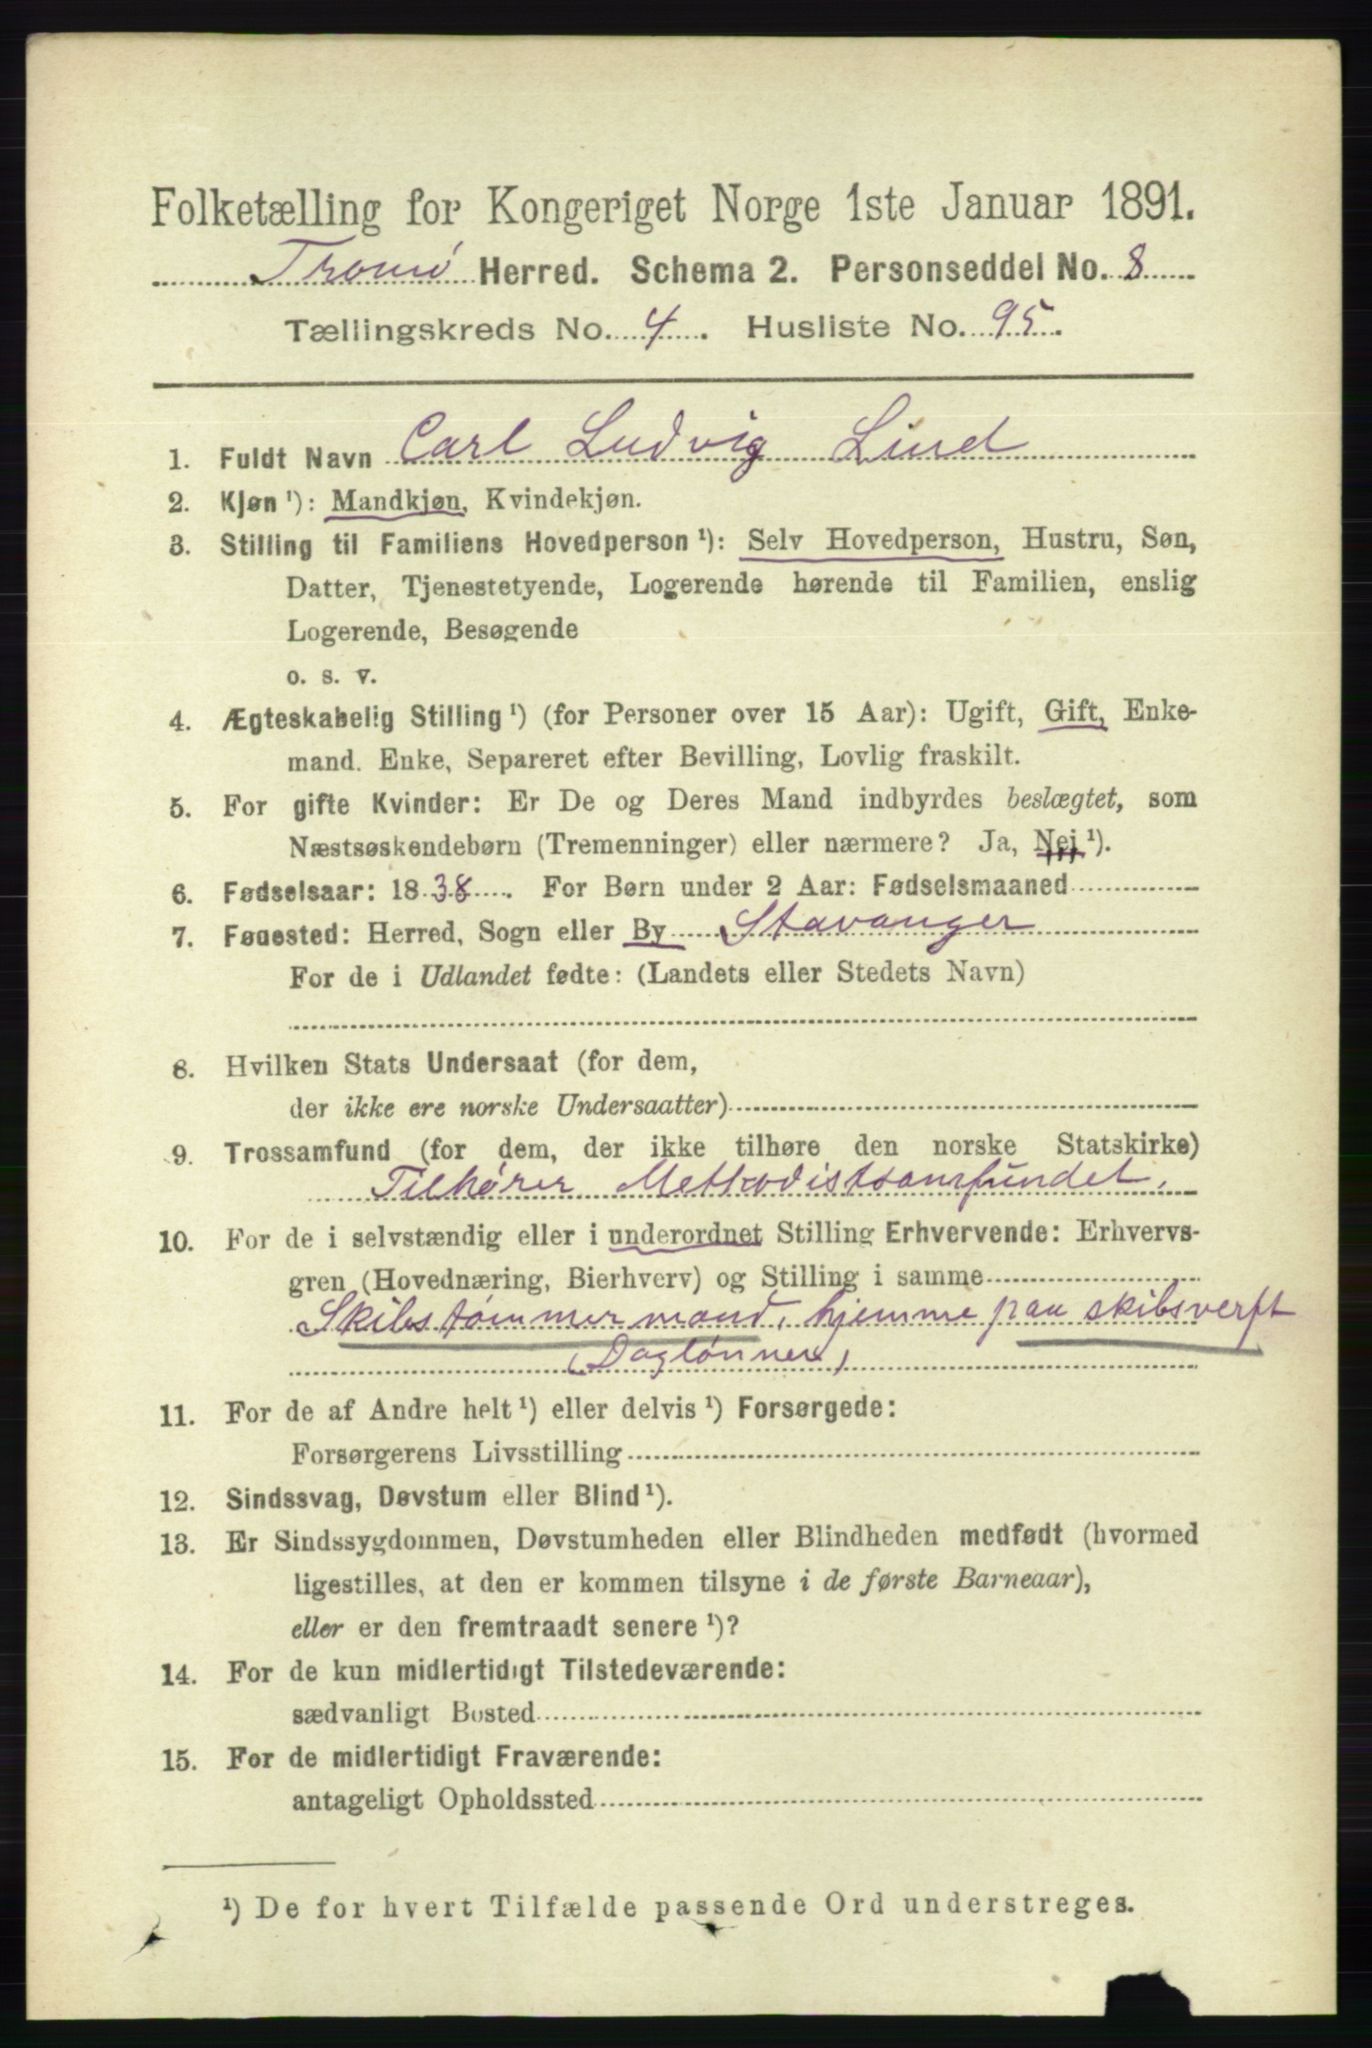 Folketælling for Kongeriget Norge 1ste Januar 1891.
Tromø Herred. Schema 2. Personseddel No. 8
Tællingskreds No. 4. Husliste No. 95.
1. Fuldt Navn Carl Ludvig Lind
2. Kjøn¹): Mandkjøn, Kvindekjøn.
3. Stilling til Familiens Hovedperson¹): Selv Hovedperson, Hustru, Søn,
Datter, Tjenestetyende, Logerende hørende til Familien, enslig
Logerende, Besøgende
o. s. v.
4. Ægteskabelig Stilling¹) (for Personer over 15 Aar): Ugift, Gift, Enke-
mand. Enke, Separeret efter Bevilling, Lovlig fraskilt.
5. For gifte Kvinder: Er De og Deres Mand indbyrdes beslægtet, som
Næstsøskendebørn (Tremenninger) eller nærmere? Ja, Nei¹).
6. Fødselsaar: 1838. For Børn under 2 Aar: Fødselsmaaned
7. Fødested: Herred, Sogn eller By Stavanger
For de i Udlandet fødte: (Landets eller Stedets Navn)
8. Hvilken Stats Undersaat (for dem,
der ikke ere norske Undersaatter)
9. Trossamfund (for dem, der ikke tilhøre den norske Statskirke)
Tilhører Methodistsamfundet.
10. For de i selvstændig eller i underordnet Stilling Erhvervende: Erhvervs-
gren (Hovednæring, Bierhverv) og Stilling i samme
Skibstømmermand, hjemme paa skibsverft
(Dagtønner)
11. For de af Andre helt¹) eller delvis¹) Forsørgede:
Forsørgerens Livsstilling
12. Sindssvag, Døvstum eller Blind¹).
13. Er Sindssygdommen, Døvstumheden eller Blindheden medfødt (hvormed
ligestilles, at den er kommen tilsyne i de første Barneaar),
eller er den fremtraadt senere¹)?
14. For de kun midlertidigt Tilstedeværende:
sædvanligt Bosted
15. For de midlertidigt Fraværende:
antageligt Opholdssted
¹) De for hvert Tilfælde passende Ord understreges.